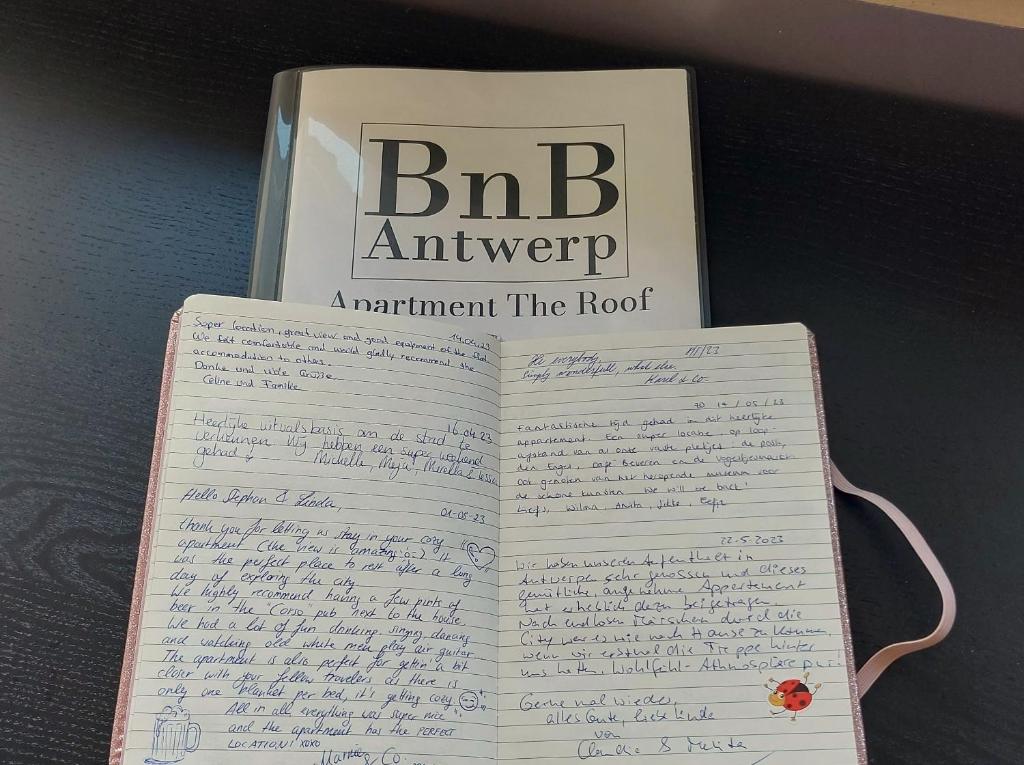 BnB
Antwerp
Apartment The Roof
14.04.23
Super location, great view and good equipment of the flat.
We felt comfortable and would gladly recommend the
accommodation to others.
Danke und viele Grüße
Celine und Familie
16.04.23
Heerlijke uitvalsbasis om de stad te
verkennen. Wij hebben een super weekend
gehad Michelle, Merella &
Hello Stephan & Linda,
01-05-23
thank you for letting us stay in your cozy
apartment (the view is amazing :o=) It
was the perfect place to rest after a long
day of exploring the city
We highly recommend having a few pints of
beer in the "Corso" pub next to the house.
We had a lot of fun drinking, singing, dancing
and watching old white men play air guitar
The apartment is also perfect for gettin' a bit
closer with your fellow travelers as there is
only one blanket per bed, it's getting cozy
All in all everything was super nice
and the apartment has the PERFECT
LOCATION! XOXO
& Co.
/23
everybody,
Simply wonderfull, what else.
& Co
zo 14/05/23
Fantastische tijd gehad in dit heerlijke
appartement. Een super locatie, op loop-
afstand van al onze vaste plekjes: de
den Engel, café Beveren en de Vogeltjesmarkt
Ook genoten van het heropende museum voor
de schone kunsten. We will be back!
Liefs, Wilma, Anita,
22-5-2023
Wir haben unseren Aufenthalt in
Antwerpen sehr genossen und dieses
gemütliche, angenehme Appartement
hat erheblich dazu beigetragen.
Nach endlosen Märschen durch die
City war es wie nach Hause zu kommen,
wenn wir erstmal die Treppe hinter
uns hatten. Wohlfühl-Athmosphäre pur!
Gerne mal wieder,
alles Gute, liebe Linde
von
Claudia &